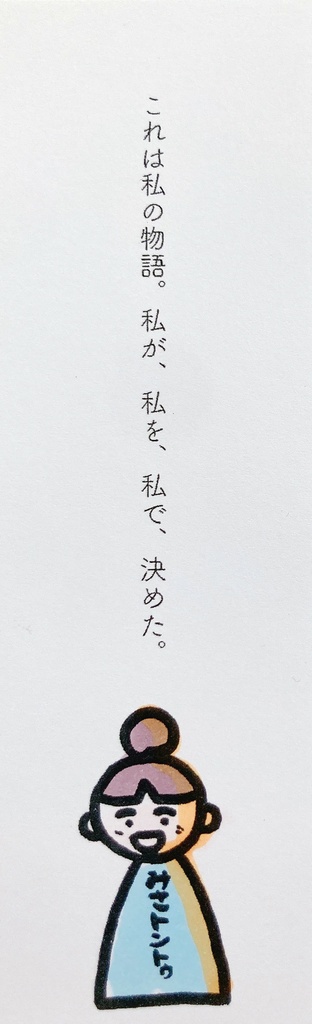 これは私の物語。私が、私を、私で、決めた。
みさトントゥ